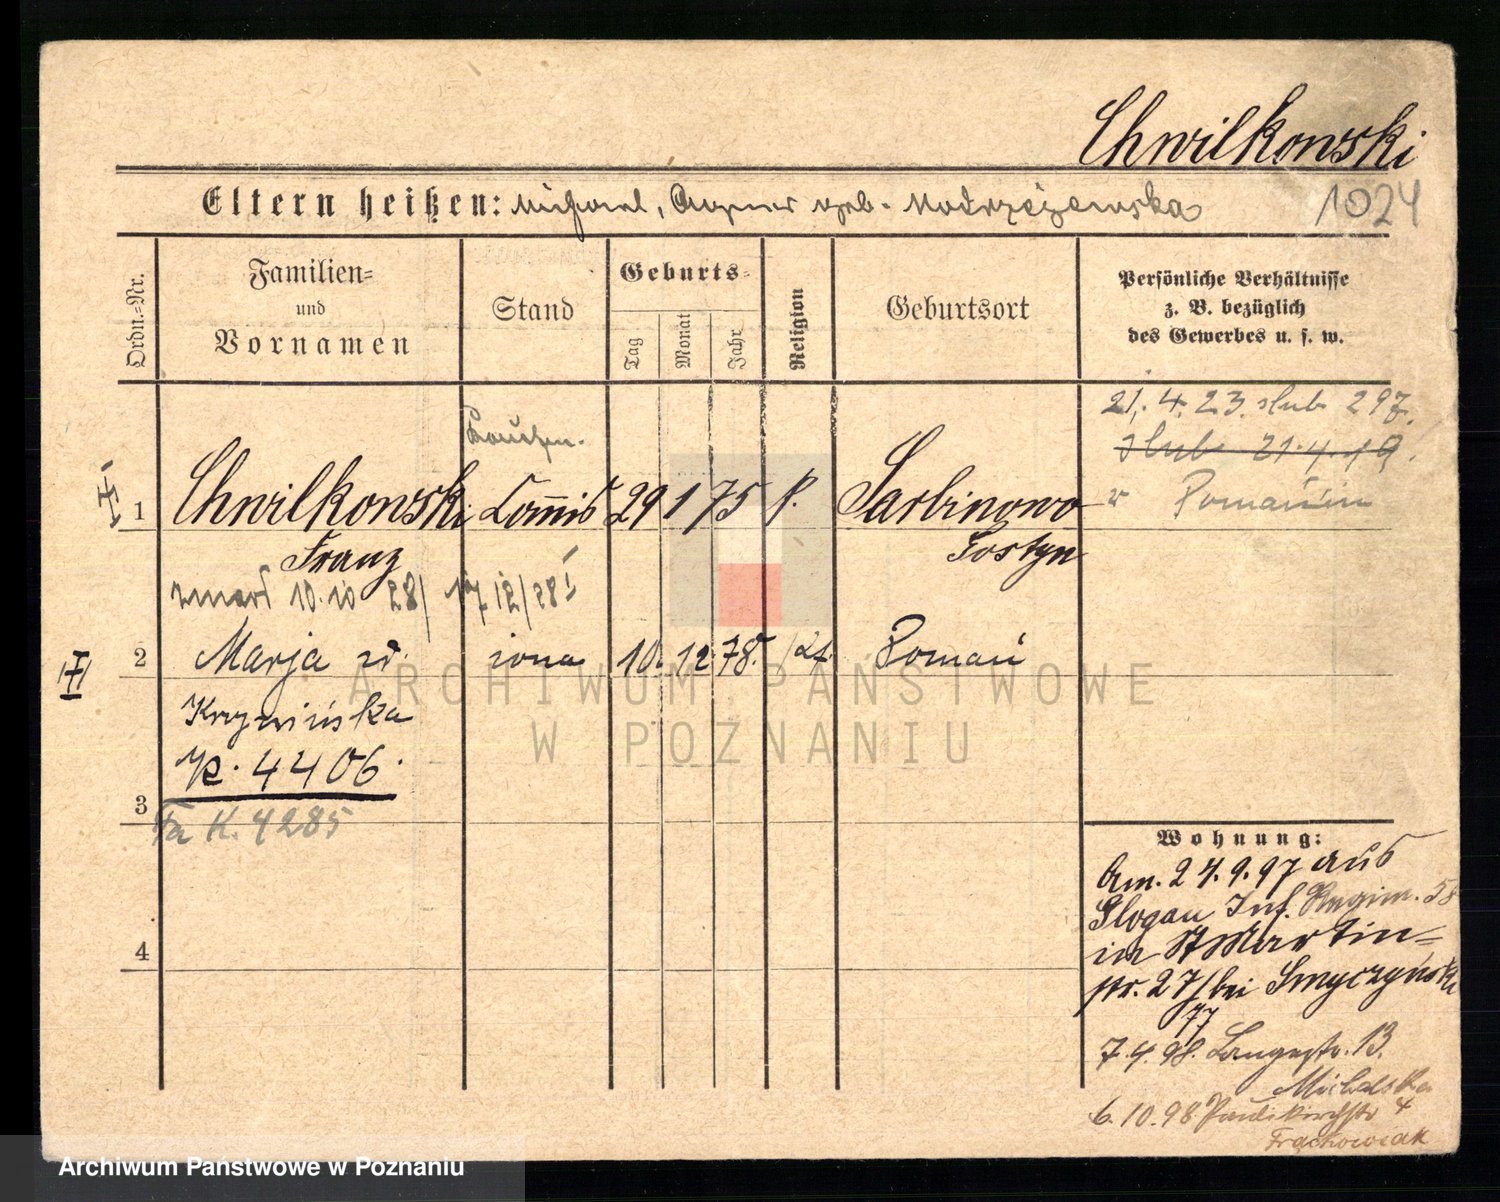 Chwilkowski
Eltern heißen: Michael, Agnes geb. Modrzejewska
1024
Ordn.-Nr.
Familien-
und
Vornamen
Stand
Geburts-
Tag
Monat
Jahr
Religion
Geburtsort
Persönliche Verhältnisse
z. B. bezüglich
des Gewerbes u. s. w.
21. 4. 23. slub 297.
slub 21.4.19.
w Poznaniu
1
Chwilkowski
Franz
Commis
29 1 75 k.
Sarbinowo
Gostyn
zmarł 10.10 28/ 12/28
2
Marja z d.
Krzywińska
żona
10. 12. 78. kat.
Poznań
K. 4406.
3
Fa K. 4285
4
Wohnung:
Am. 24.9.97 aus
Glogau Inf. Regim. 58
in St Martin-
str. 27/bei Smyczyński
77
7.4.98. Langestr. 13.
Michalska
6.10.98 Paulikirchstr 4
Frąckowiak
ARCHIWUM PAŃSTWOWE
W POZNANIU
Archiwum Państwowe w Poznaniu